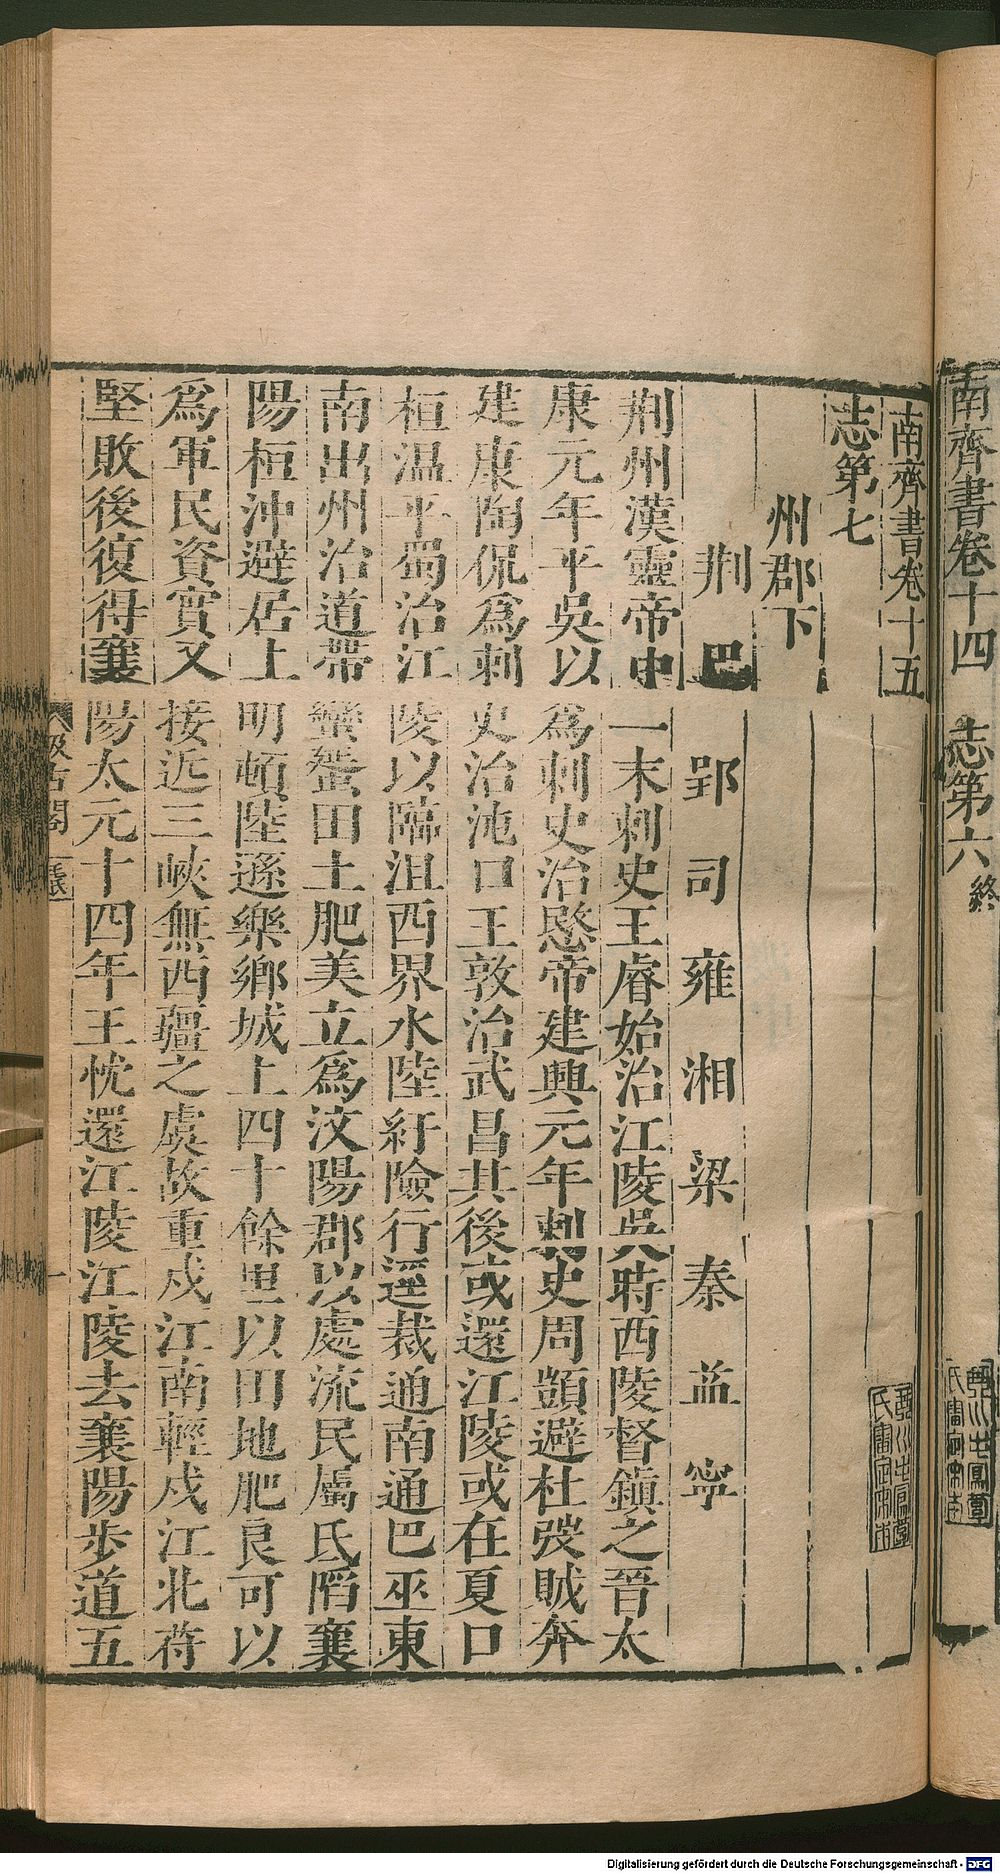 南齊書卷十四 志第六 終
南齊書卷十五
志第七
州郡下
荆 巴 郢 司 雍 湘 梁 秦 益 寧
荆州漢靈帝中一末刺史王睿始治江陵吳時西陵督鎮之晉太
康元年平吳以爲刺史治愍帝建興元年刺史周顗避杜弢賊奔
建康陶侃爲刺史治沌口王敦治武昌其後或還江陵或在夏口
桓温平蜀治江陵以臨沮西界水陸紆險行逕裁通南通巴巫東
南出州治道帶蠻蜑田土肥美立爲汶陽郡以處流民屬氐陷襄
陽桓沖避居上明頓陸遜樂鄉城上四十餘里以田地肥良可以
爲軍民資實又接近三峽無西疆之虞故重戍江南輕戍江北苻
堅敗後復得襄陽太元十四年王忱還江陵江陵去襄陽步道五
汲古閣
一
Digitalisierung gefördert durch die Deutsche Forschungsgemeinschaft - DFG